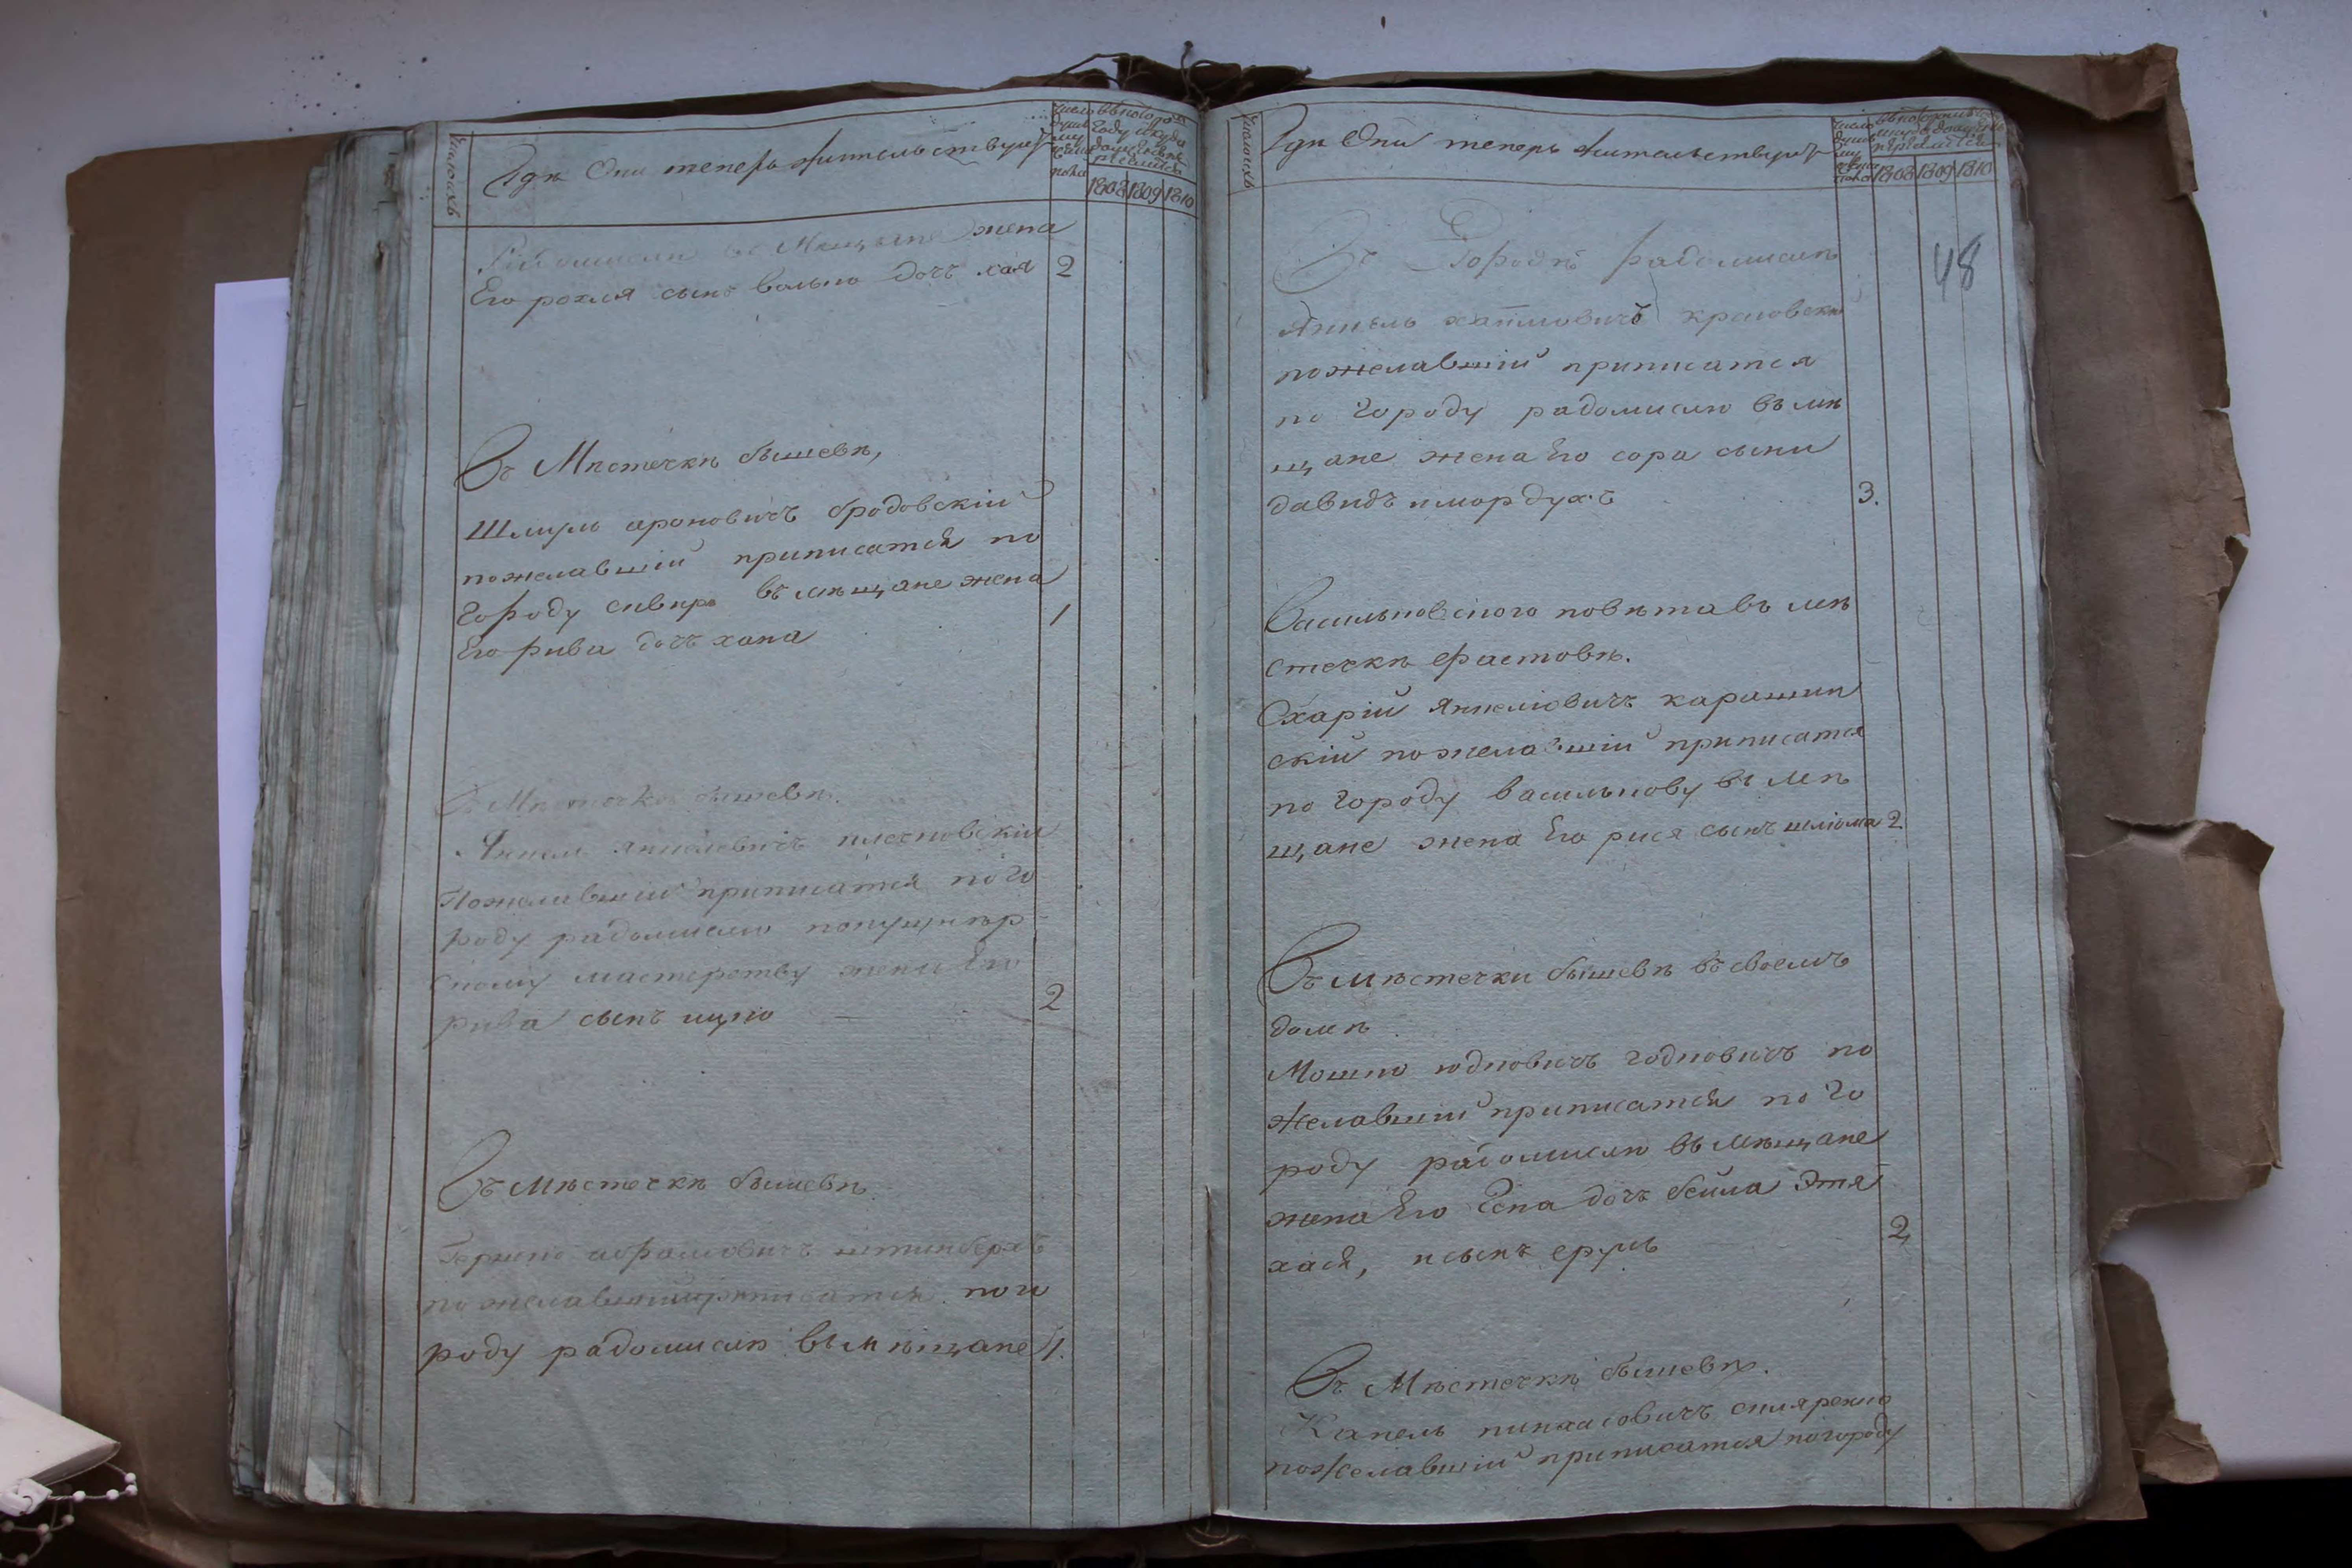 Гдѣ Они теперь жительствуют
Число
душъ
му
1808 1809 1810
Радомисли въ Мещане жена
Его рохля сынъ волько дочъ хая 2
Въ Мѣстечкѣ бышевѣ,
Шмуль ароновичъ бродовскій
пожелавшій приписатся по
Городу сквиро въ мѣщане жена
Его рива дочъ хана 1
Въ Мѣстечкѣ бышевѣ.
Янкель янкелевичъ
Пожелавшій приписатся по го
роду радомислю
скому мастерству жена Его
рива сынъ ицко 2
Въ мѣстечкѣ бышевѣ
Гершко абрамовичъ
пожелавшій приписатся по го
роду радомислю въ мѣщане 1.
Гдѣ Они теперь жительствуют
число
душъ
му
1808 1809 1810
48
Въ Городѣ радомислѣ
Янкель хаимовичъ
пожелавшій приписатся
по Городу радомислю въ мѣ
щане жена Его сора сыни
давидъ и мордухъ 3.
Васильковского повѣта въ мѣ
стечкѣ фастовѣ.
Схарій янкелювичъ карашин
скій пожелавшій приписатся
по городу василькову въ мѣ
щане жена Его рися сынъ шліома 2.
Въ мѣстечки бышевѣ въ своемъ
домѣ
Мошко юдковичъ годновичъ по
желавшій приписатся по Го
роду радомислю въ мѣщане
жена Его дочъ бейла Этя
хася, и сынъ 2
Въ Мѣстечкѣ бышевѣ.
Капель пинхасовичъ скляренко
пожелавшій приписатся по городу